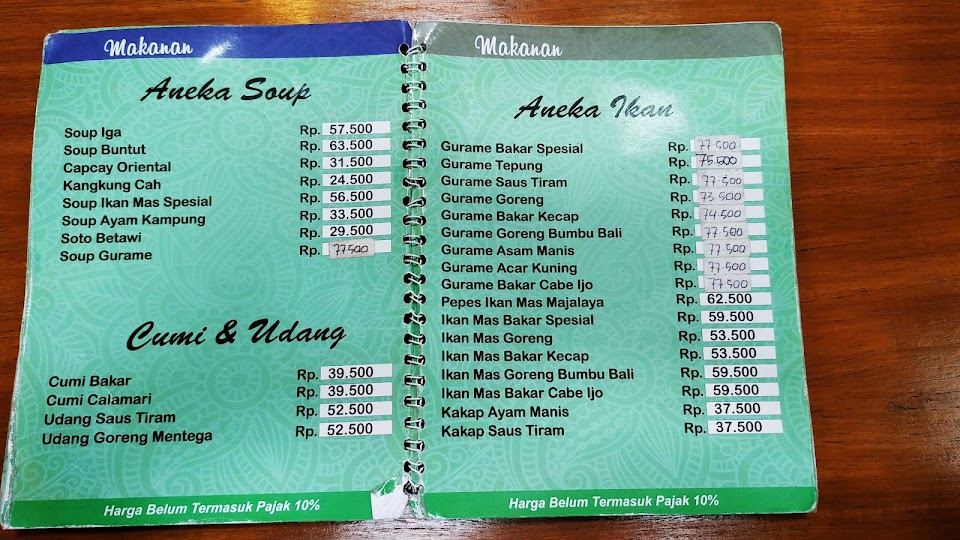 Makanan
Aneka Soup
Soup Iga Rp. 57.500
Soup Buntut Rp. 63.500
Capcay Oriental Rp. 31.500
Kangkung Cah Rp. 24.500
Soup Ikan Mas Spesial Rp. 56.500
Soup Ayam Kampung Rp. 33.500
Soto Betawi Rp. 29.500
Soup Gurame Rp. 77500
Cumi & Udang
Cumi Bakar Rp. 39.500
Cumi Calamari Rp. 39.500
Udang Saus Tiram Rp. 52.500
Udang Goreng Mentega Rp. 52.500
Harga Belum Termasuk Pajak 10%
Makanan
Aneka Ikan
Gurame Bakar Spesial Rp. 77.500
Gurame Tepung Rp. 75.500
Gurame Saus Tiram Rp. 77.500
Gurame Goreng Rp. 73.500
Gurame Bakar Kecap Rp. 74.500
Gurame Goreng Bumbu Bali Rp. 77.500
Gurame Asam Manis Rp. 77.500
Gurame Acar Kuning Rp. 77.500
Gurame Bakar Cabe Ijo Rp. 77.500
Pepes Ikan Mas Majalaya Rp. 62.500
Ikan Mas Bakar Spesial Rp. 59.500
Ikan Mas Goreng Rp. 53.500
Ikan Mas Bakar Kecap Rp. 53.500
Ikan Mas Goreng Bumbu Bali Rp. 59.500
Ikan Mas Bakar Cabe Ijo Rp. 59.500
Kakap Ayam Manis Rp. 37.500
Kakap Saus Tiram Rp. 37.500
Harga Belum Termasuk Pajak 10%